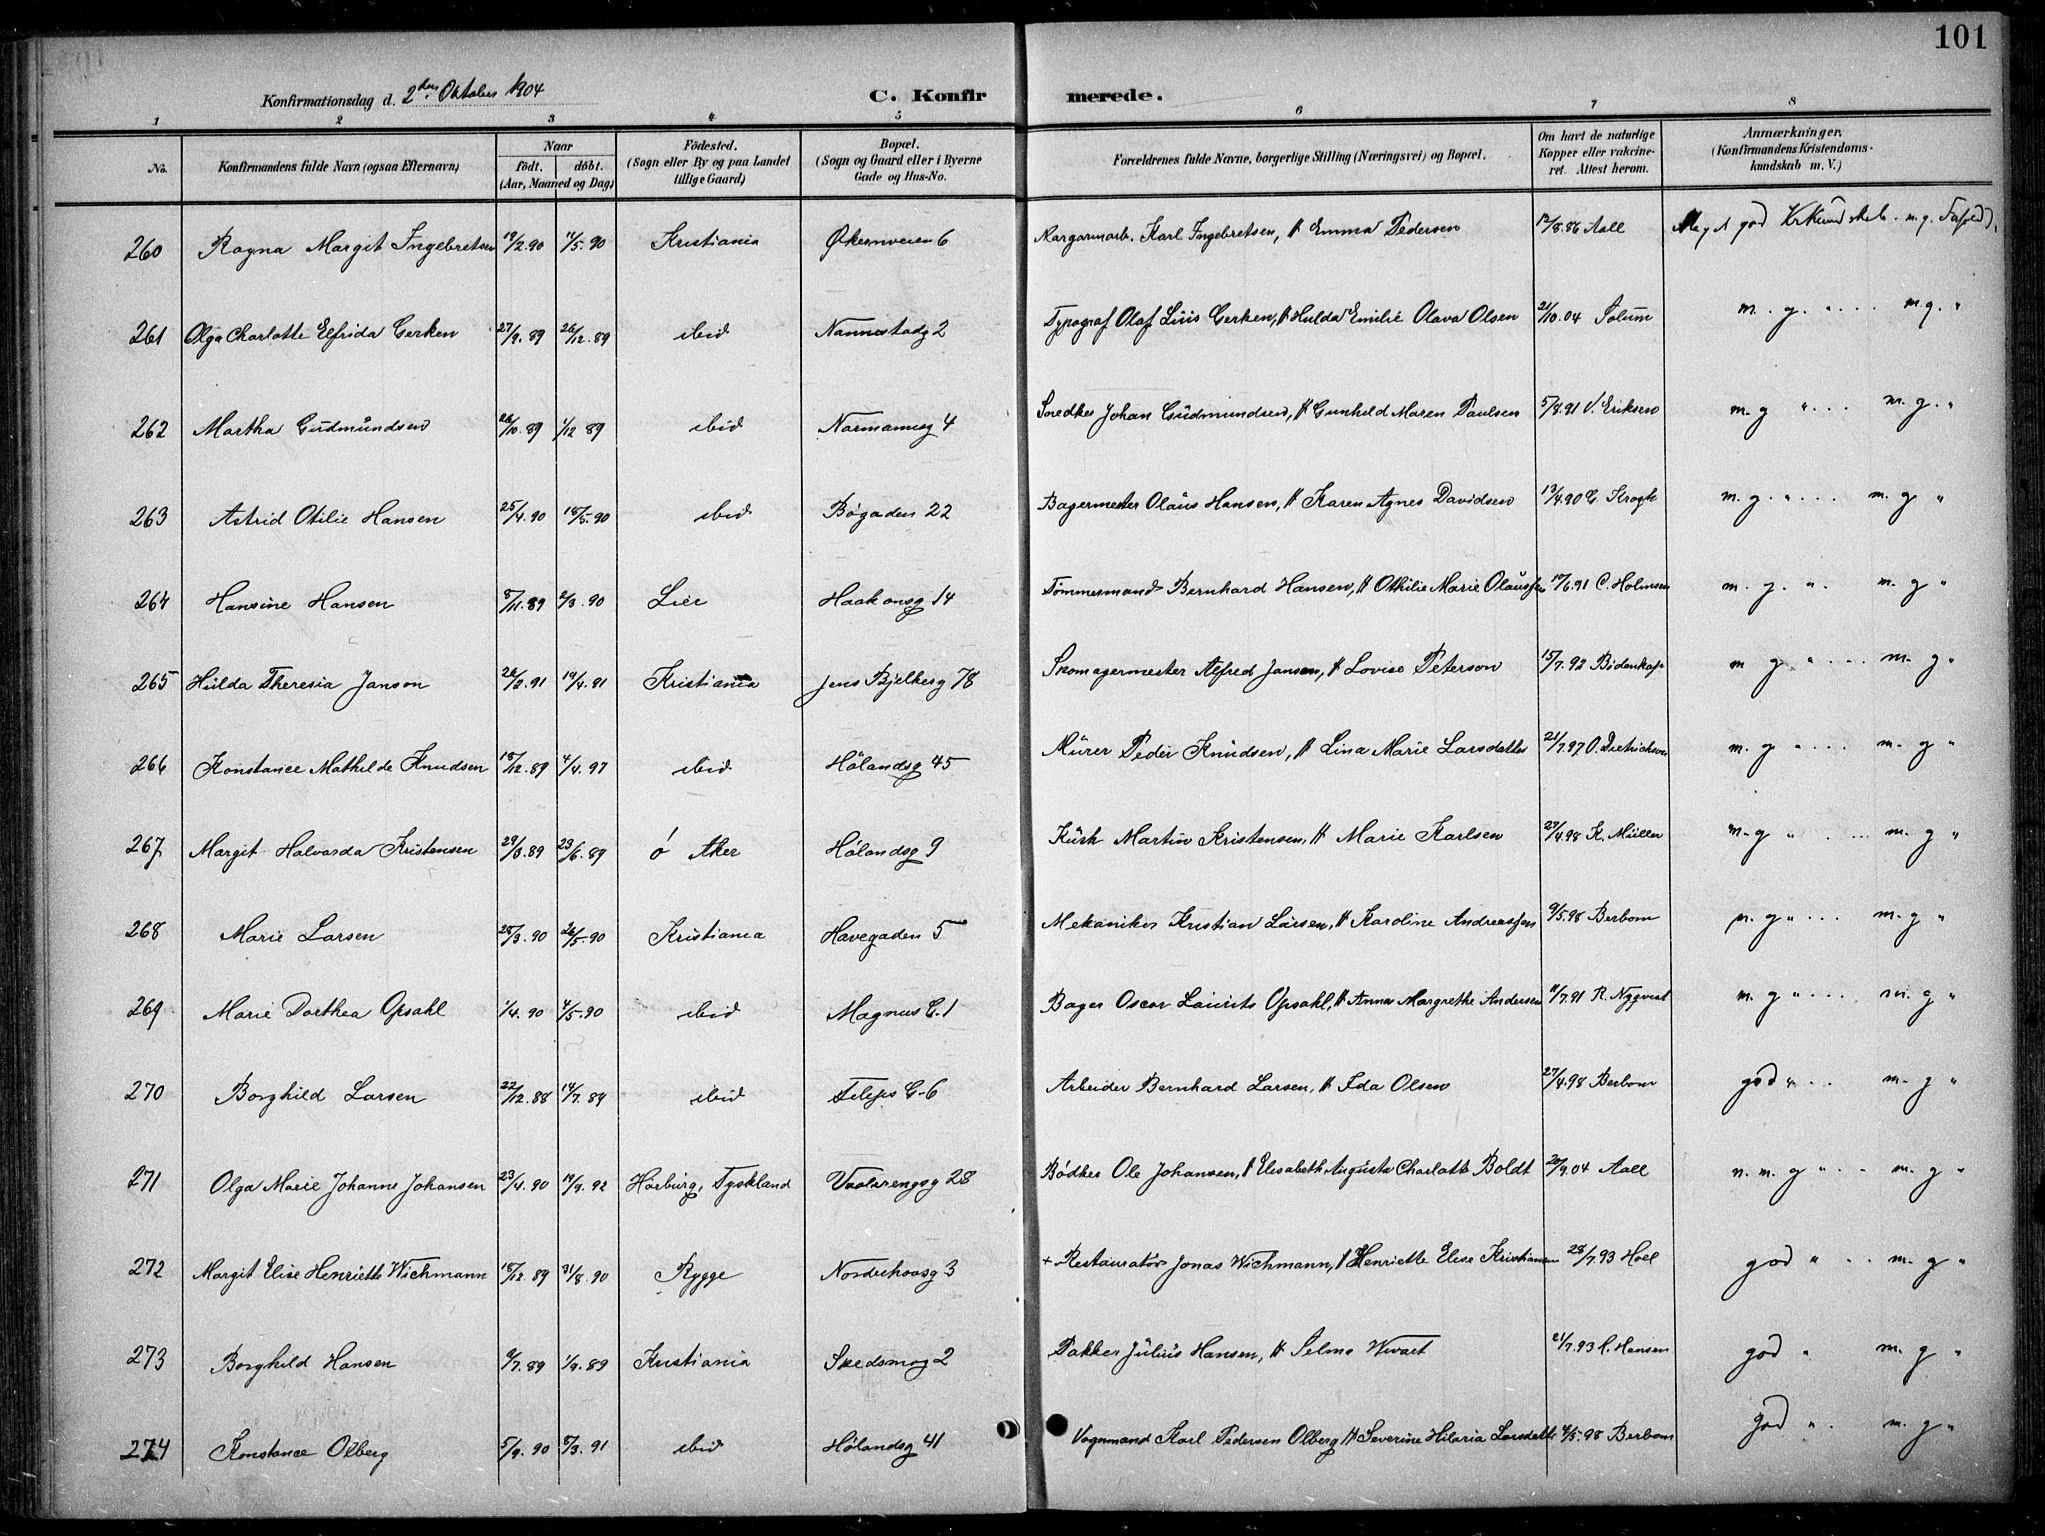 101
Konfirmationsdag d. 2den Oktober 1904 C. Konfirmerede.
1 2 3 4 5 6 7 8
No. Konfirmandens fulde Navn (ogsaa Efternavn) Naar födt. döbt. (Aar, Maaned og Dag) Födested. (Sogn eller By og paa Landet tillige Gaard) Bopæl. (Sogn og Gaard eller i Byerne Gade og Hus-No. Forældrenes fulde Navne, borgerlige Stilling (Næringsvei) og Bopæl. Om havt de naturlige Kopper eller vakcineret. Attest herom. Anmærkninger. (Konfirmandens Kristendomskundskab m. V.)
260 Ragna Margit Ingebretsen 19/2 90 11/5. 90 Kristiania Økernveien 6 Margarinarb. Karl Ingebretsen, H Emma Pedersen 12/8.86 Aall Meget god Krkundskab. m. g.
261 Olga Charlotte Elfrida Gerken 27/9. 89 26/12. 89 ibid Nannestadg 2 Typograf Olaf Luis Gerken, H Hulda Emilie Olava Olsen 21/10.04 Solum m. g. " . . . m. g. "
262 Martha Gudmundsen 26/10. 89 1/12 89 ibid Normannsg 4 Snedker Johan Gudmundsen, H Gunhild Maren Paulsen 5/8.91 V. Eriksen m. g " . . . m. g. "
263 Astrid Otilie Hansen 25/4. 90 18/5. 90 ibid Bøgaden 22 Bagermester Olaus Hansen, H Karen Agnes Davidsen 13/4.90 C. Krogh m. g. " . . . m. g "
264 Hansine Hansen 8/11. 89 2/3. 90 Lier Haakonsg 14 Tömmermand Bernhard Hansen, H Othilie Marie Olaussen 17/6.91 C. Holmsen m. g. " . m. g "
265 Hulda Theresia Janson 26/2. 91 19/4. 91 Kristiania Jens Bjelkesg 78 Skomagermester Alfred Jansen, H Lovise Peterson 15/7.92 Bidenkap m g " . . . m. g "
266 Konstance Mathilde Knudsen 18/12. 89 4/4. 97 ibid Hölandsg 45 Murer Peder Knudsen, H Lina Marie Larsdatter 21/7.97 O. Dietrichson m. g " . . . m. g "
267 Margit Halvarda Kristensen 29/3. 89 23/6. 89 Ø Aker Hölandsg 9 Kusk Martin Kristensen, H Marie Karlsen 27/4.98 K. Müller m. g " . . . m. g "
268 Marie Larsen 28/3. 90 26/5. 90 Kristiania Havegaden 5 Mekaniker Kristian Larsen, H Karoline Andreassen 9/5.98 Berbom m. g " . . . m. g "
269 Marie Dorthea Opsahl 1/4. 90 4/5. 90 ibid Magnus G. 1 Bager Oscar Laurits Opsahl, H Anna Margrethe Andersen 11/7.91 R. Nyqvist m. g " . . . m. g "
270 Borghild Larsen 22/12. 88 14/7. 89 ibid Filips G. 6 Arbeider Bernhard Larsen, H Ida Olsen 27/4.98 Berbom god " . . m. g "
271 Olga Marie Johanne Johansen 23/4. 90 19/9. 92 Harburg, Tyskland Vaalerengsg 28 Bødker Ole Johansen, H Elisabeth Augusta Charlotte Boldt 20/9.04 Aall n. m. g " . . m. g "
272 Margit Elise Henriette Wichmann 18/12. 89 31/8. 90 Rygge Norderhovsg 3 + Restauratör Jonas Wichmann, H Henriette Elise Kristiansen 28/7.93 Hoel god " . . m. g "
273 Borghild Hansen 9/7. 89 1/9. 89 Kristiania Skedsmog 2 Pakker Julius Hansen, H Selma Wivart 21/7.93 C. Hansen god " m. g "
274 Konstance Olberg 5/9. 90 8/3. 91 ibid Hölandsg 41 Vognmand Karl Pedersen Olberg H Severine Hilaria Larsdatter 4/5.98 Berbom god " . m. g "